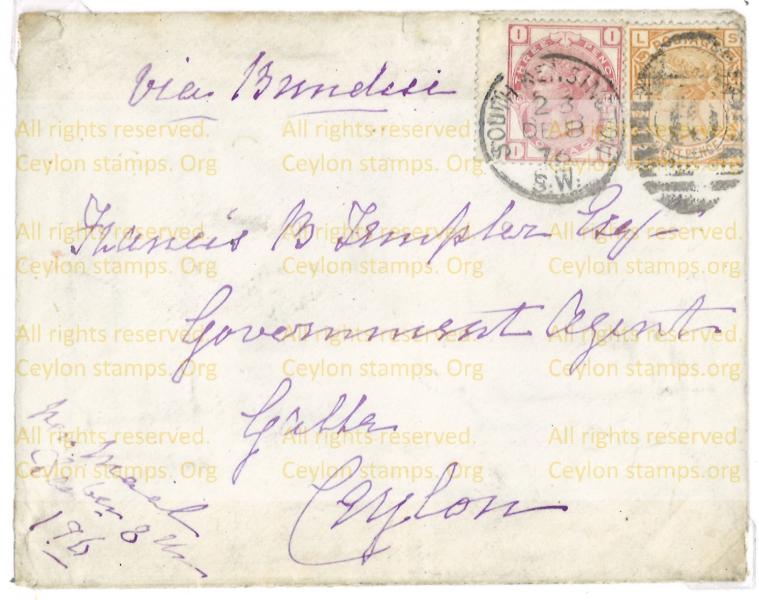 via Brindisi
I I
THREE PENCE
I
SOUTH KENSINGTON
23
DE 8
76
S.W.
L POSTAGE S
EIGHT PENCE
Francis B Templer Esq
Government Agent
Galle
Ceylon
per Mail
8th
All rights reserved. All rights reserved. All rights reserved.
Ceylon stamps. Org Ceylon stamps. Org Ceylon stamps. Org
All rights reserved. All rights reserved. All rights reserved.
Ceylon stamps. Org Ceylon stamps. Org Ceylon stamps.org
All rights reserved. All rights reserved. All rights reserved.
Ceylon stamps. Org Ceylon stamps. Org Ceylon stamps. Org
All rights reserved. All rights reserved. All rights reserved.
Ceylon stamps. Org Ceylon stamps. Org Ceylon stamps. Org